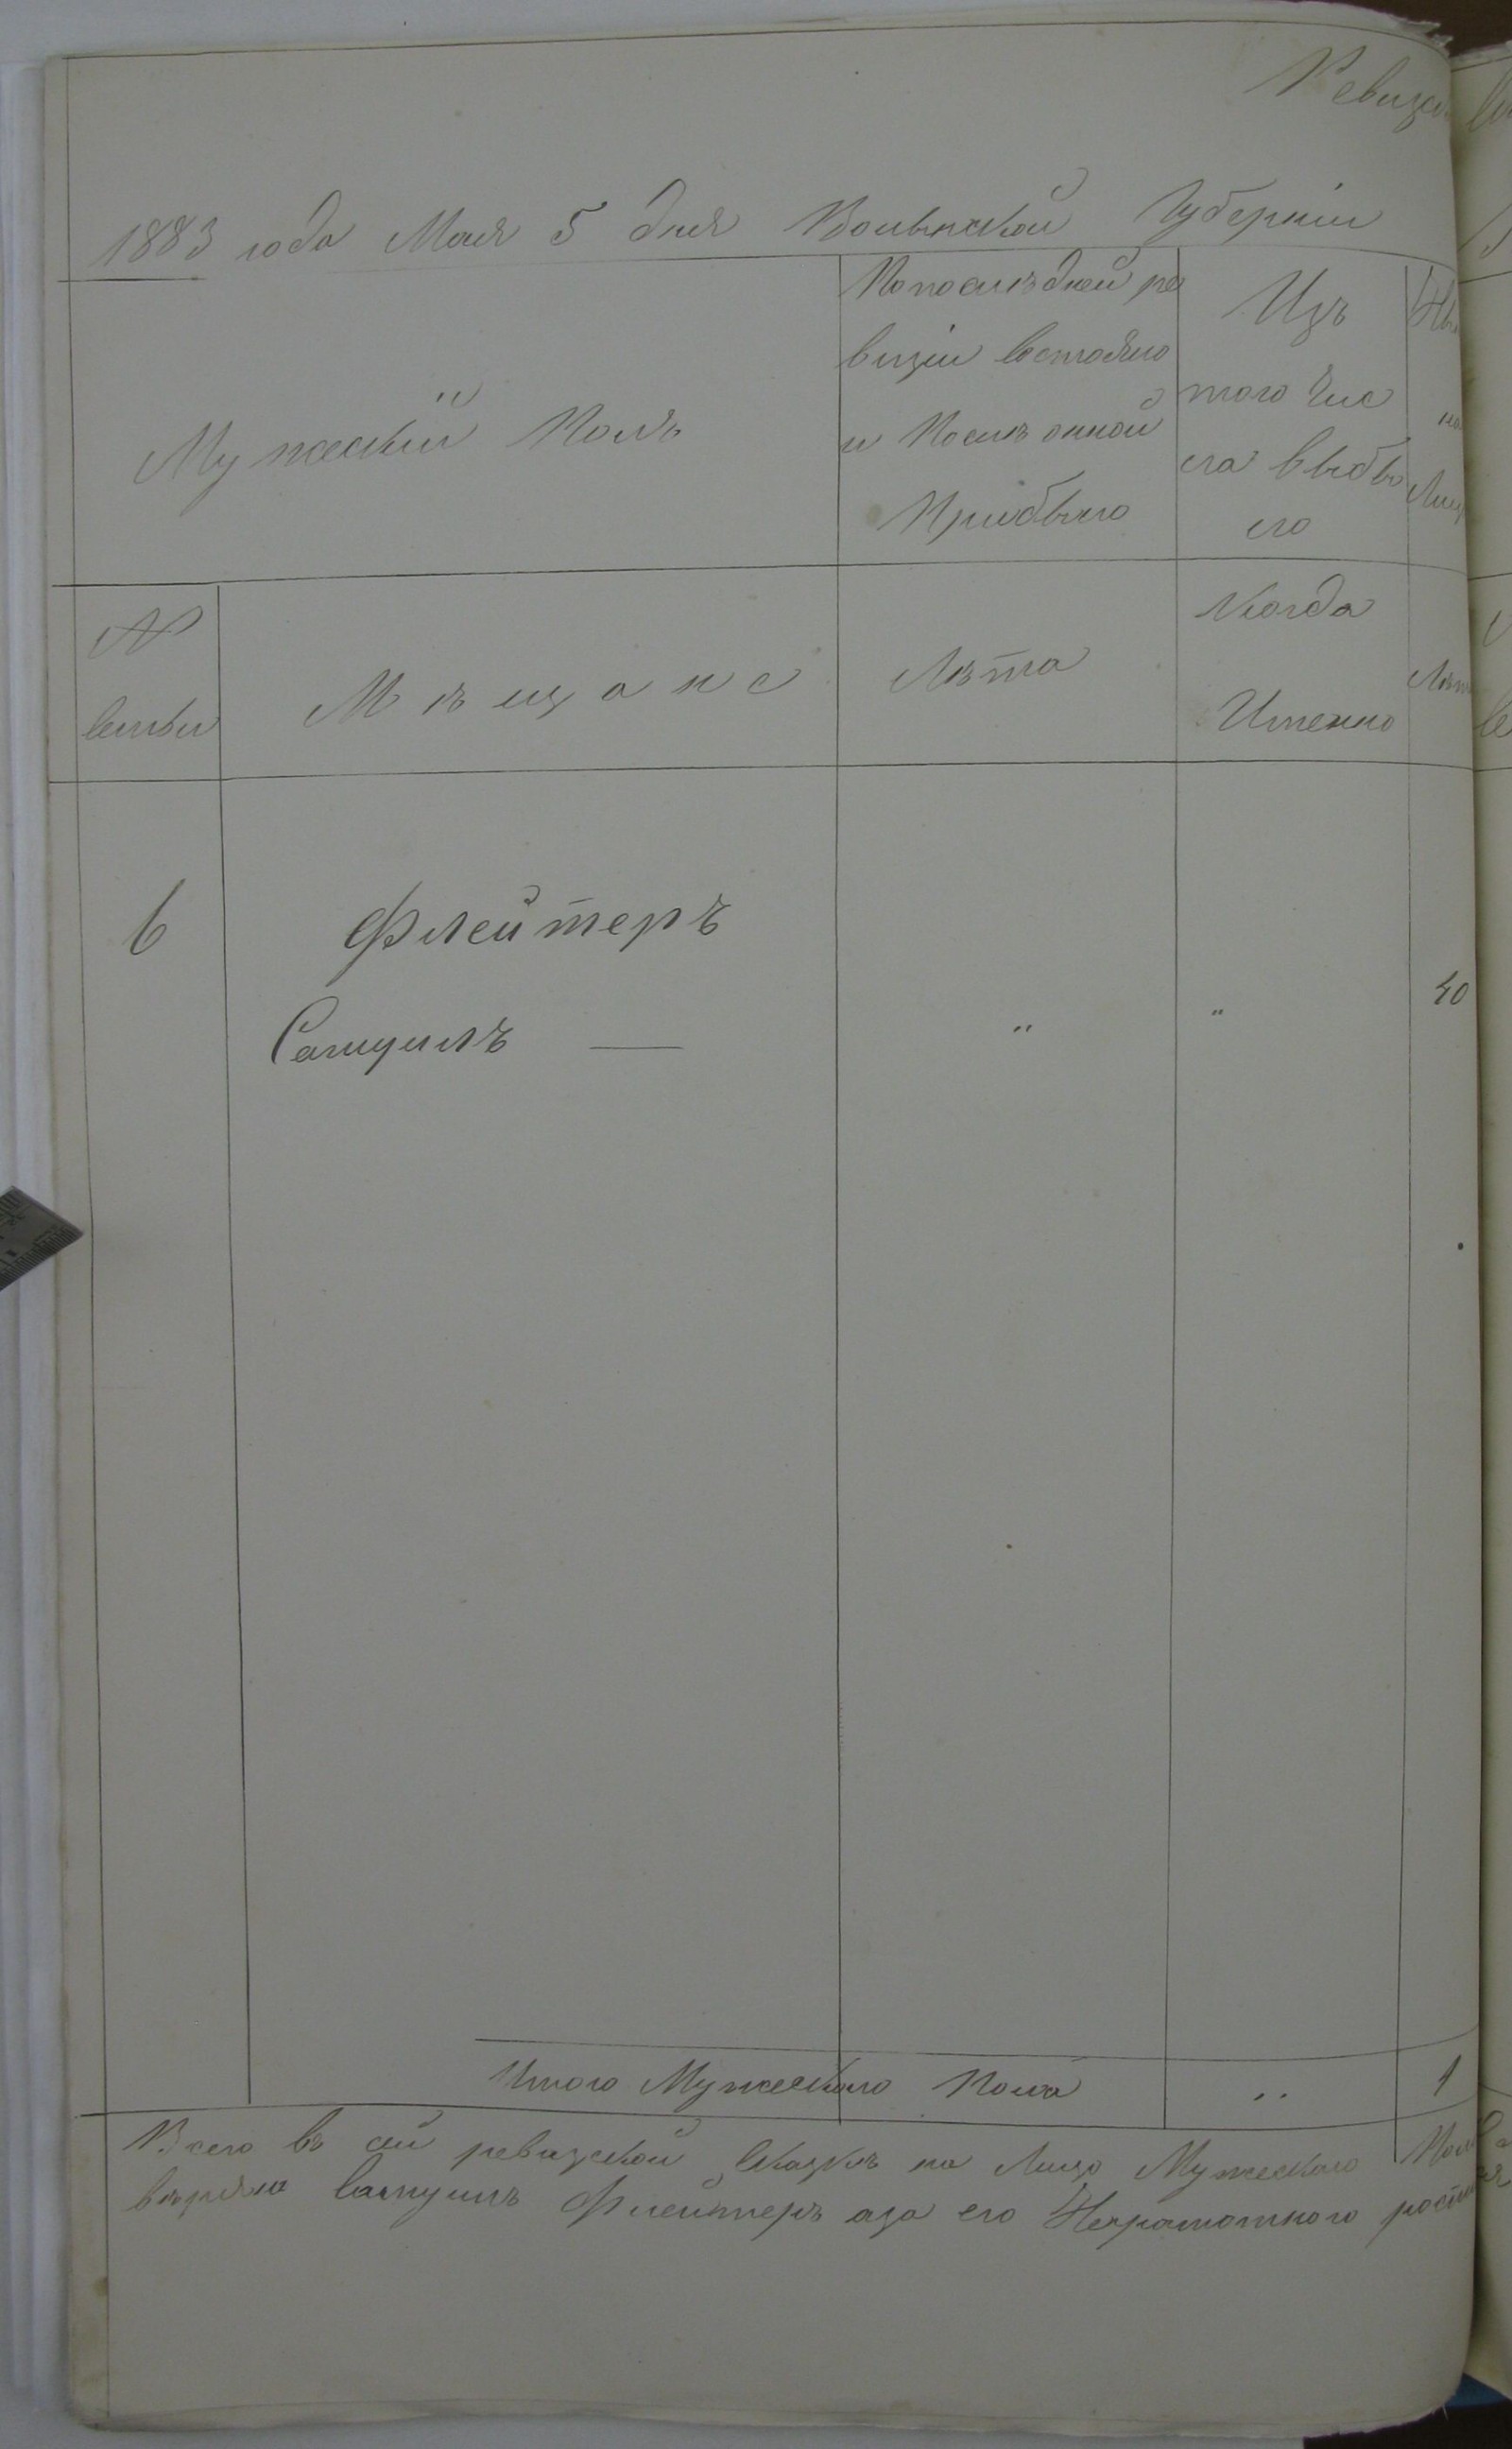 Ревизс
1883 года Мая 5 дня Волынской Губернии
Мужеский Полъ
По последней ре
визiи Состояло
и После оной
Прибыло
Изъ
того Чис
ла Выбы
ло
№
Семьи
Мѣщане
Лѣта
Когда
Именно
6
Флейтеръ
Самуилъ —
"
"
40
Итого Мужескаго Пола
"
1
Всего въ сей ревизской Сказкѣ на Лицо Мужескаго
Самуилъ Флейтеръ аза его Неграмотнаго